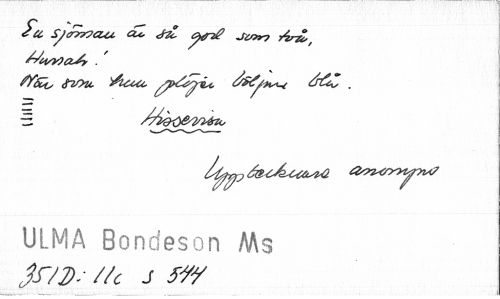 En sjöman är så god som två,
Hurrah!
När som han plöjer böljorna blå.
Hissevisa
Upptecknare anonym
ULMA Bondeson Ms
351D: 11c s 544